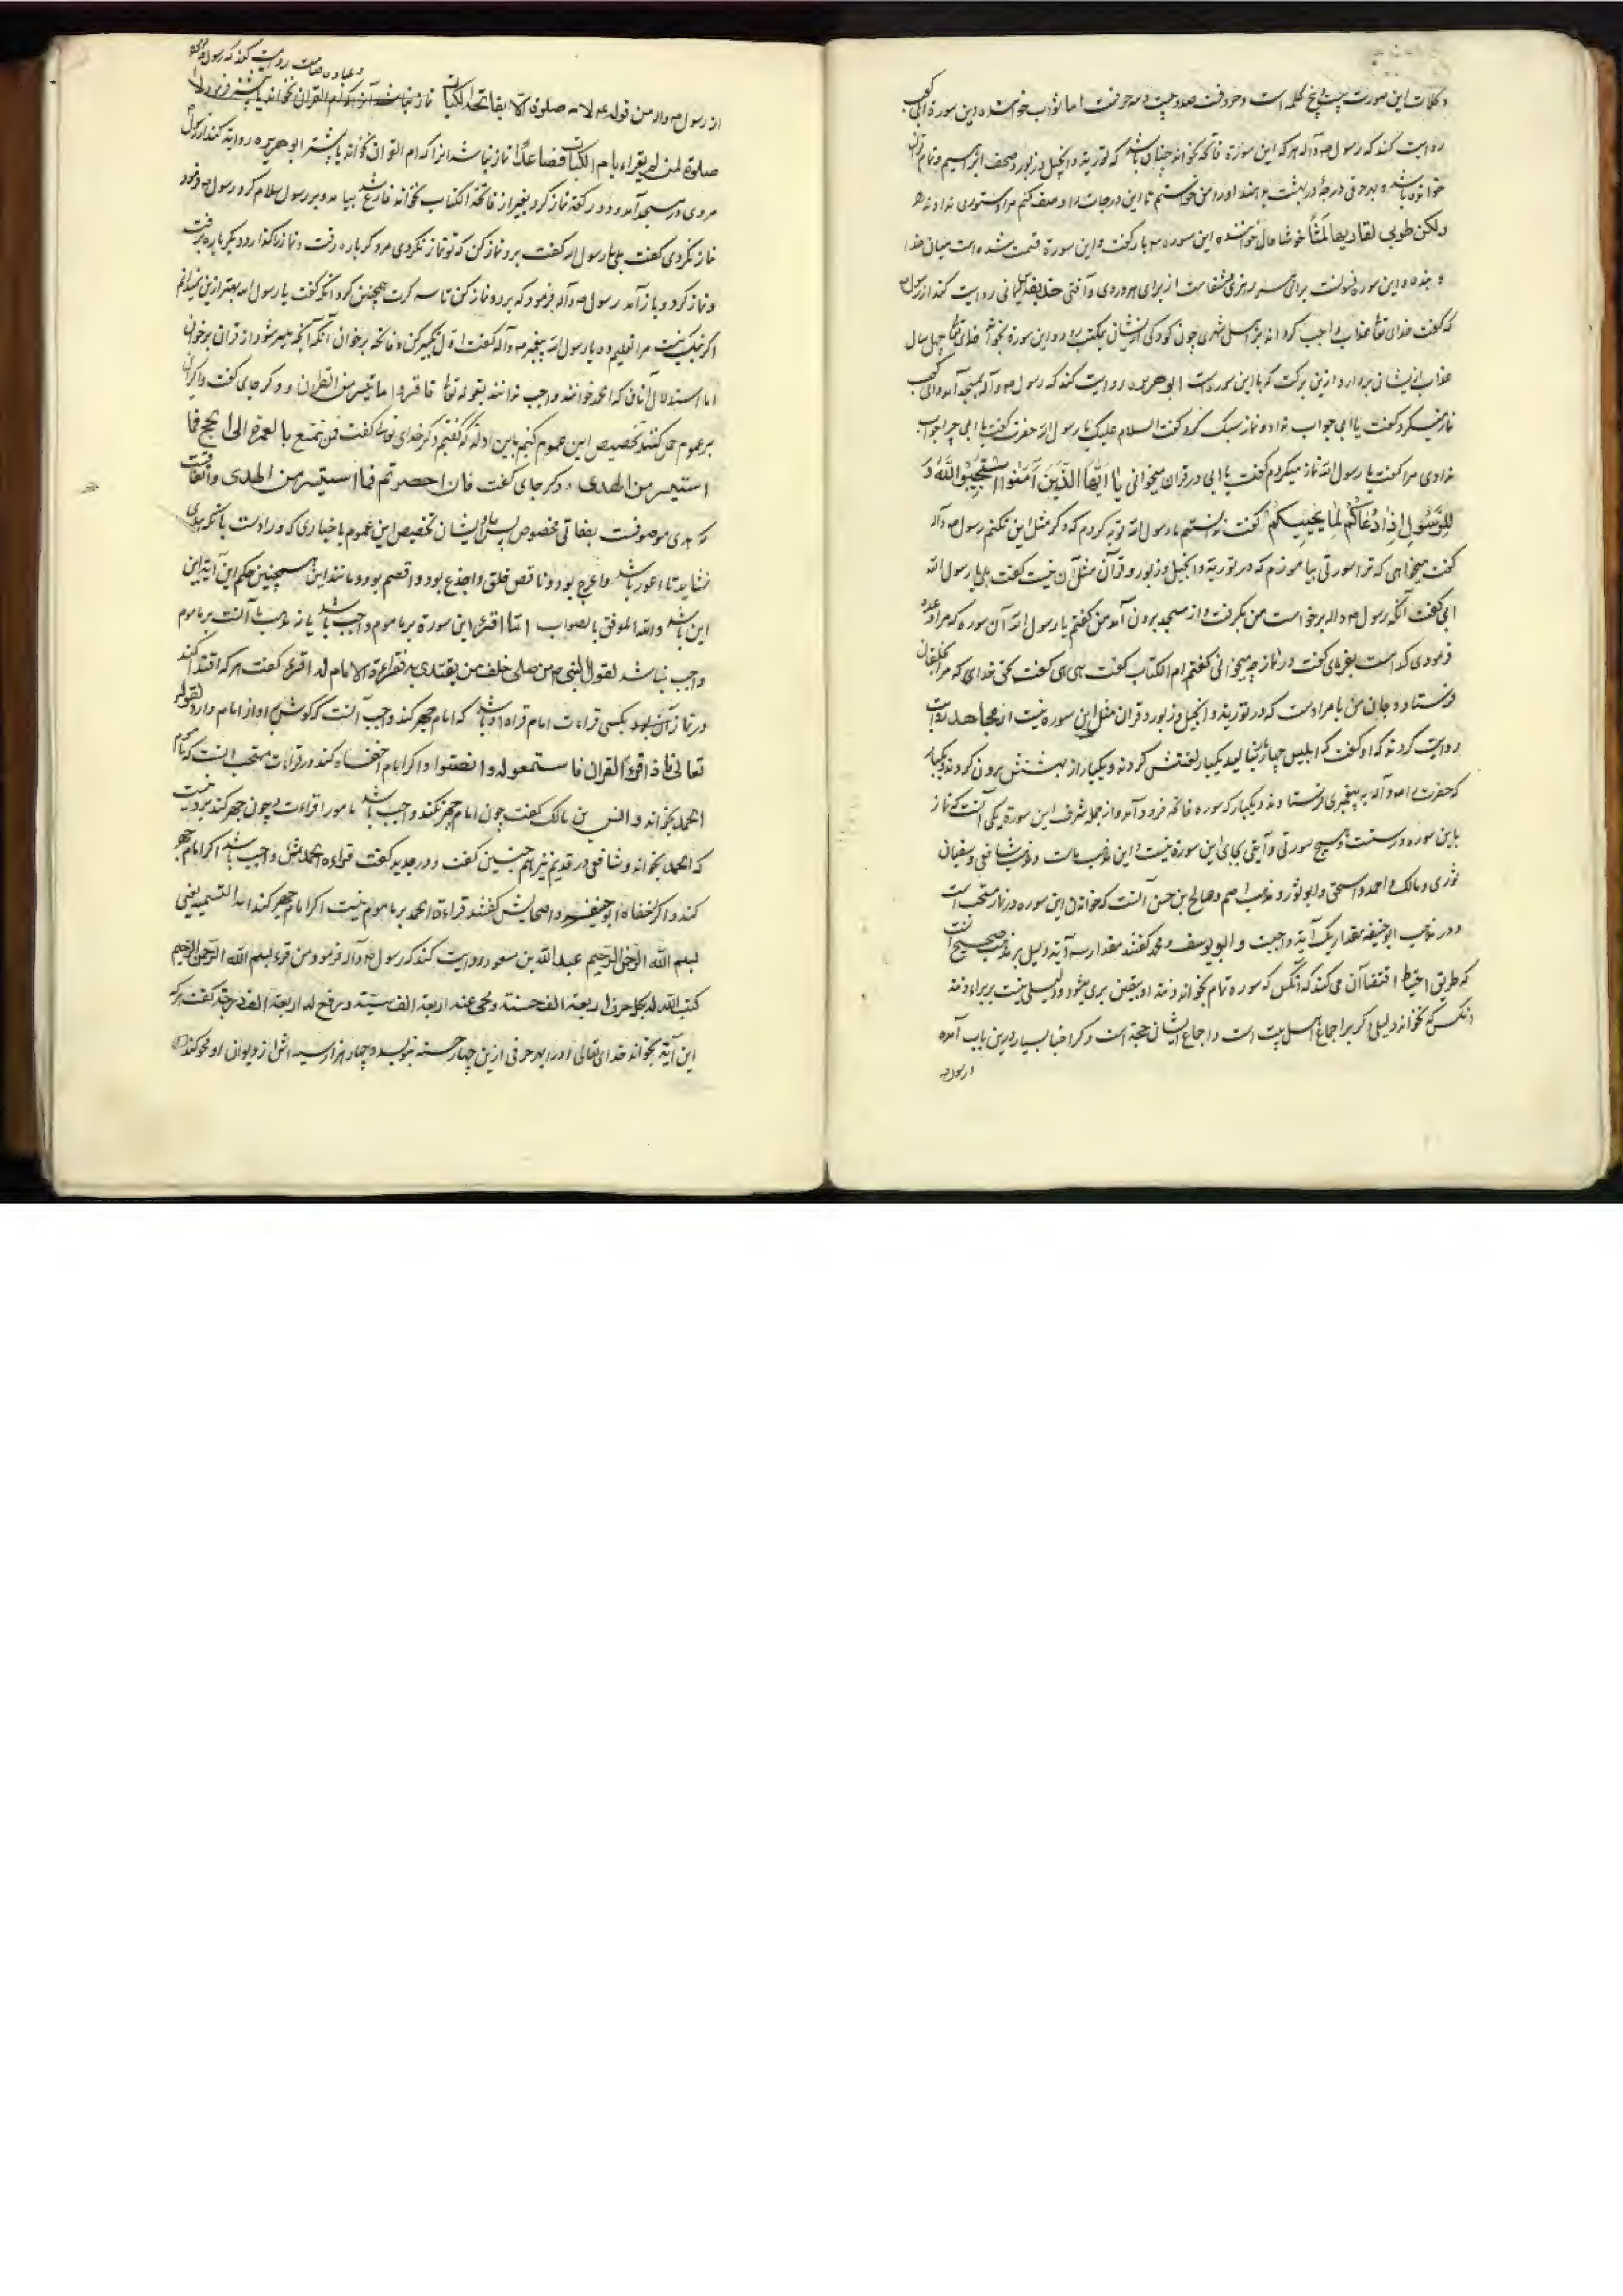 و کلمات این صورت بیست پنج کلمه است و حروفت صد و بیست و سه حرفت اما ثواب خواننده این سوره ابی کعب
روایت کند که رسول ص و آله هر که این سورة فاتحه بخواند چنان باشد که توریة و انجیل و زبور و صحف ابراهیم و تمام قران
خوانده باشد و بهر حرفی درجهٔ در بهشت بدهند او را من خواستم تا این درجات را وصف کنم مرا دستوری ندادند
ولکن طوبی لقاریها ثلثاً خوشا حال خواننده این سوره سه بار گفت و این سورة قسمت شده است میان خدا
و بنده و این سوره شفاست از برای هر دردی و آفتی حذیفه یمانی روایت کند از رسول ص
که گفت خدای تعا عذاب واجب گرداند بر اهل شهری چون کودکی ازیشان بمکتب رود و این سورة بخواند خدای تعا چهل سال
عذاب ازیشان بردارد ازین برکت که با این سورت است ابوهریره روایت کند که رسول ص و آله بمسجد آمد و ابی کعب
نماز میکرد گفت یا ابی جواب نداد و نماز سبک کرد گفت السلام علیک یا رسول الله حضرت گفت یا ابی چرا جواب
ندادی مرا گفت یا رسول الله نماز میکردم گفت یا ابی در قران میخوانی یَا اَیُّهَا الَّذینَ آمَنُوا اسْتَجیبُوا لِلّهِ وَ
لِلرَّسُولِ اِذَا دَعَاکُمْ لِمَا یُحْییکُمْ گفت ندانستم یا رسول الله توبه کردم که دگر مثل این نکنم رسول ص و آله
گفت میخواهی که ترا سورتی بیاموزم که در توریة و انجیل و زبور و قرآن مثل آن نیست گفت بلی یا رسول الله
ابی گفت آنگه رسول ص و اله برخاست من بگرفت و از مسجد برون آمد من گفتم یا رسول الله آن سوره که مرا وعده
فرمودی کدامست بفرمای گفت در نماز چه میخوانی گفتم ام الکتاب گفت هی هی گفت بحق خدای که مرا بخلقان
فرستاد و جان من بامر اوست که در توریة و انجیل و زبور و قران مثل این سوره نیست از مجاهد روایت
روایت کردند که او گفت که ابلیس چهار بار بنالید یکبار لعنتش کردند و یکبار از بهشتش برون کردند و یکبار
که حضرت را ص و آله به پیغمبری فرستادند و یکبار که سوره فاتحه فرود آمد و از جمله شرف این سورة یکی آنست که نماز
باین سوره درستست و هیچ سورتی و آیتی بجای این سورة نیست و این مذهب ماست و مذهب شافعی و سفیان
ثوری و مالک و احمد و اسحق و ابو ثور و مذهب اصم و صالح بن حسن آنست که خواندن این سوره در نماز مستحب است
و در مذهب ابو حنیفه مقدار یک آیة واجبست و ابو یوسف و محمد گفتند مقدار سه آیة و دلیل بر مذهب صحیح آنست
که طریق احتیاط اقتضا آن می کند که آنکس که سوره تمام بخواند ذمت او بیقین بری شود و دلیلی نیست بر براءة ذمة
انکس که نخواند دلیلی اگر بر اجماع اهل بیت است و اجماع ایشان حجة است و دگر اخبار بسیار درین باب آمده
از رسول ص
و عباده صامت روایت کند که رسول
از رسول ص و اله من قوله ع لا صلوة الا بفاتحة الکتاب نماز نباشد آنرا که ام القران نخواند
صلوة لمن لم یقراء بام الکتاب فصاعداً نماز نباشد انرا که ام القران نخواند یا بیشتر ابوهریره روایة کند از رسول
مردی در مسجد آمد و دو رکعة نماز کرد بغیر از فاتحة الکتاب نخواند فارغ شد بیامد و بر رسول سلام کرد رسول ص فرمود
نماز نکردی گفت بلی یا رسول الله گفت برو نماز کن که تو نماز نکردی مرد دگر باره رفت و نماز بگذارد و دیگر باره برفت
و نماز کرد و باز آمد رسول ص و آله فرمود که برو و نماز کن تا سه کرت همچنین کرد آنگه گفت یا رسول الله بهتر ازین نمیدانم
اگر نیک نیست مرا تعلیم ده یا رسول الله پیغمبر ص و آله گفت اول تکبیر کن و فاتحه برخوان آنگه آنچه میسر شود از قران برخوان
اما استدلال آنان که الحمد نخوانند واجب ندانند بقوله تعا فاقروا ما تیسر من القران و دگر جای گفت
بر عموم حمل کنند تخصیص این عموم کنیم باین ادله که گفتیم و دگر خدای تعا گفت فمن تمتع بالعمرة الی الحج فما
استیسر من الهدی و دگر جای گفت فان احصرتم فما استیسر من الهدی و اتفاقست
که هدی موصوفست بصفاتی مخصوص پس ما و ایشان تخصیص این عموم باخباری که وارداست باینکه هدی
نشاید تا اعور باشد و اعرج بود و ناقص خلق و اجذع بود و اقصم بود و مانند این همچنین حکم این آیة این
این باشد و الله الموفق بالصواب اما اقرای این سورة بر ماموم واجب باشد یا نه مذهب ما آنست بر ماموم
واجب نباشد لقول النبی ص من صلی خلف من یقتدی به فقراءة الامام له اقری گفت هر که اقتدا کند
در نماز بکسی قراءت امام قراءة او باشد که امام جهر کند واجب آنست که گوش باواز امام دارد لقوله
تعالی فاذا قرئ القران فاستمعوا له و انصتوا و اگر امام اخفاء کند در قراءت مستحب انست که ماموم
الحمد بخواند و انس بن مالک گفت چون امام جهر نکند واجب باشد ماموم را قراءت و چون جهر کند برو نیست
که الحمد بخواند و شافعی در قدیم نیز هم چنین گفت و در جدید گفت قراءة الحمدش واجب باشد اگر امام جهر
کند و اگر اخفاء ابو حنیفه و اصحابش گفتند قراءة الحمد بر ماموم نیست اگر امام جهر کند اما التسمیه یعنی
بسم الله الرحمن الرحیم عبد الله بن مسعود روایت کند که رسول ص و آله فرمود من قرء بسم الله الرحمن الرحیم
کتب الله له بکل حرف اربعة الف حسنة و محی عنه اربعة الف سیئة و رفع له اربعة الف درجة گفت هر که
این آیة بخواند خدای تعالی او را بهر حرفی ازین چهار حسنه بنویسد و چهار هزار سیئه اش از دیوان او محو کند